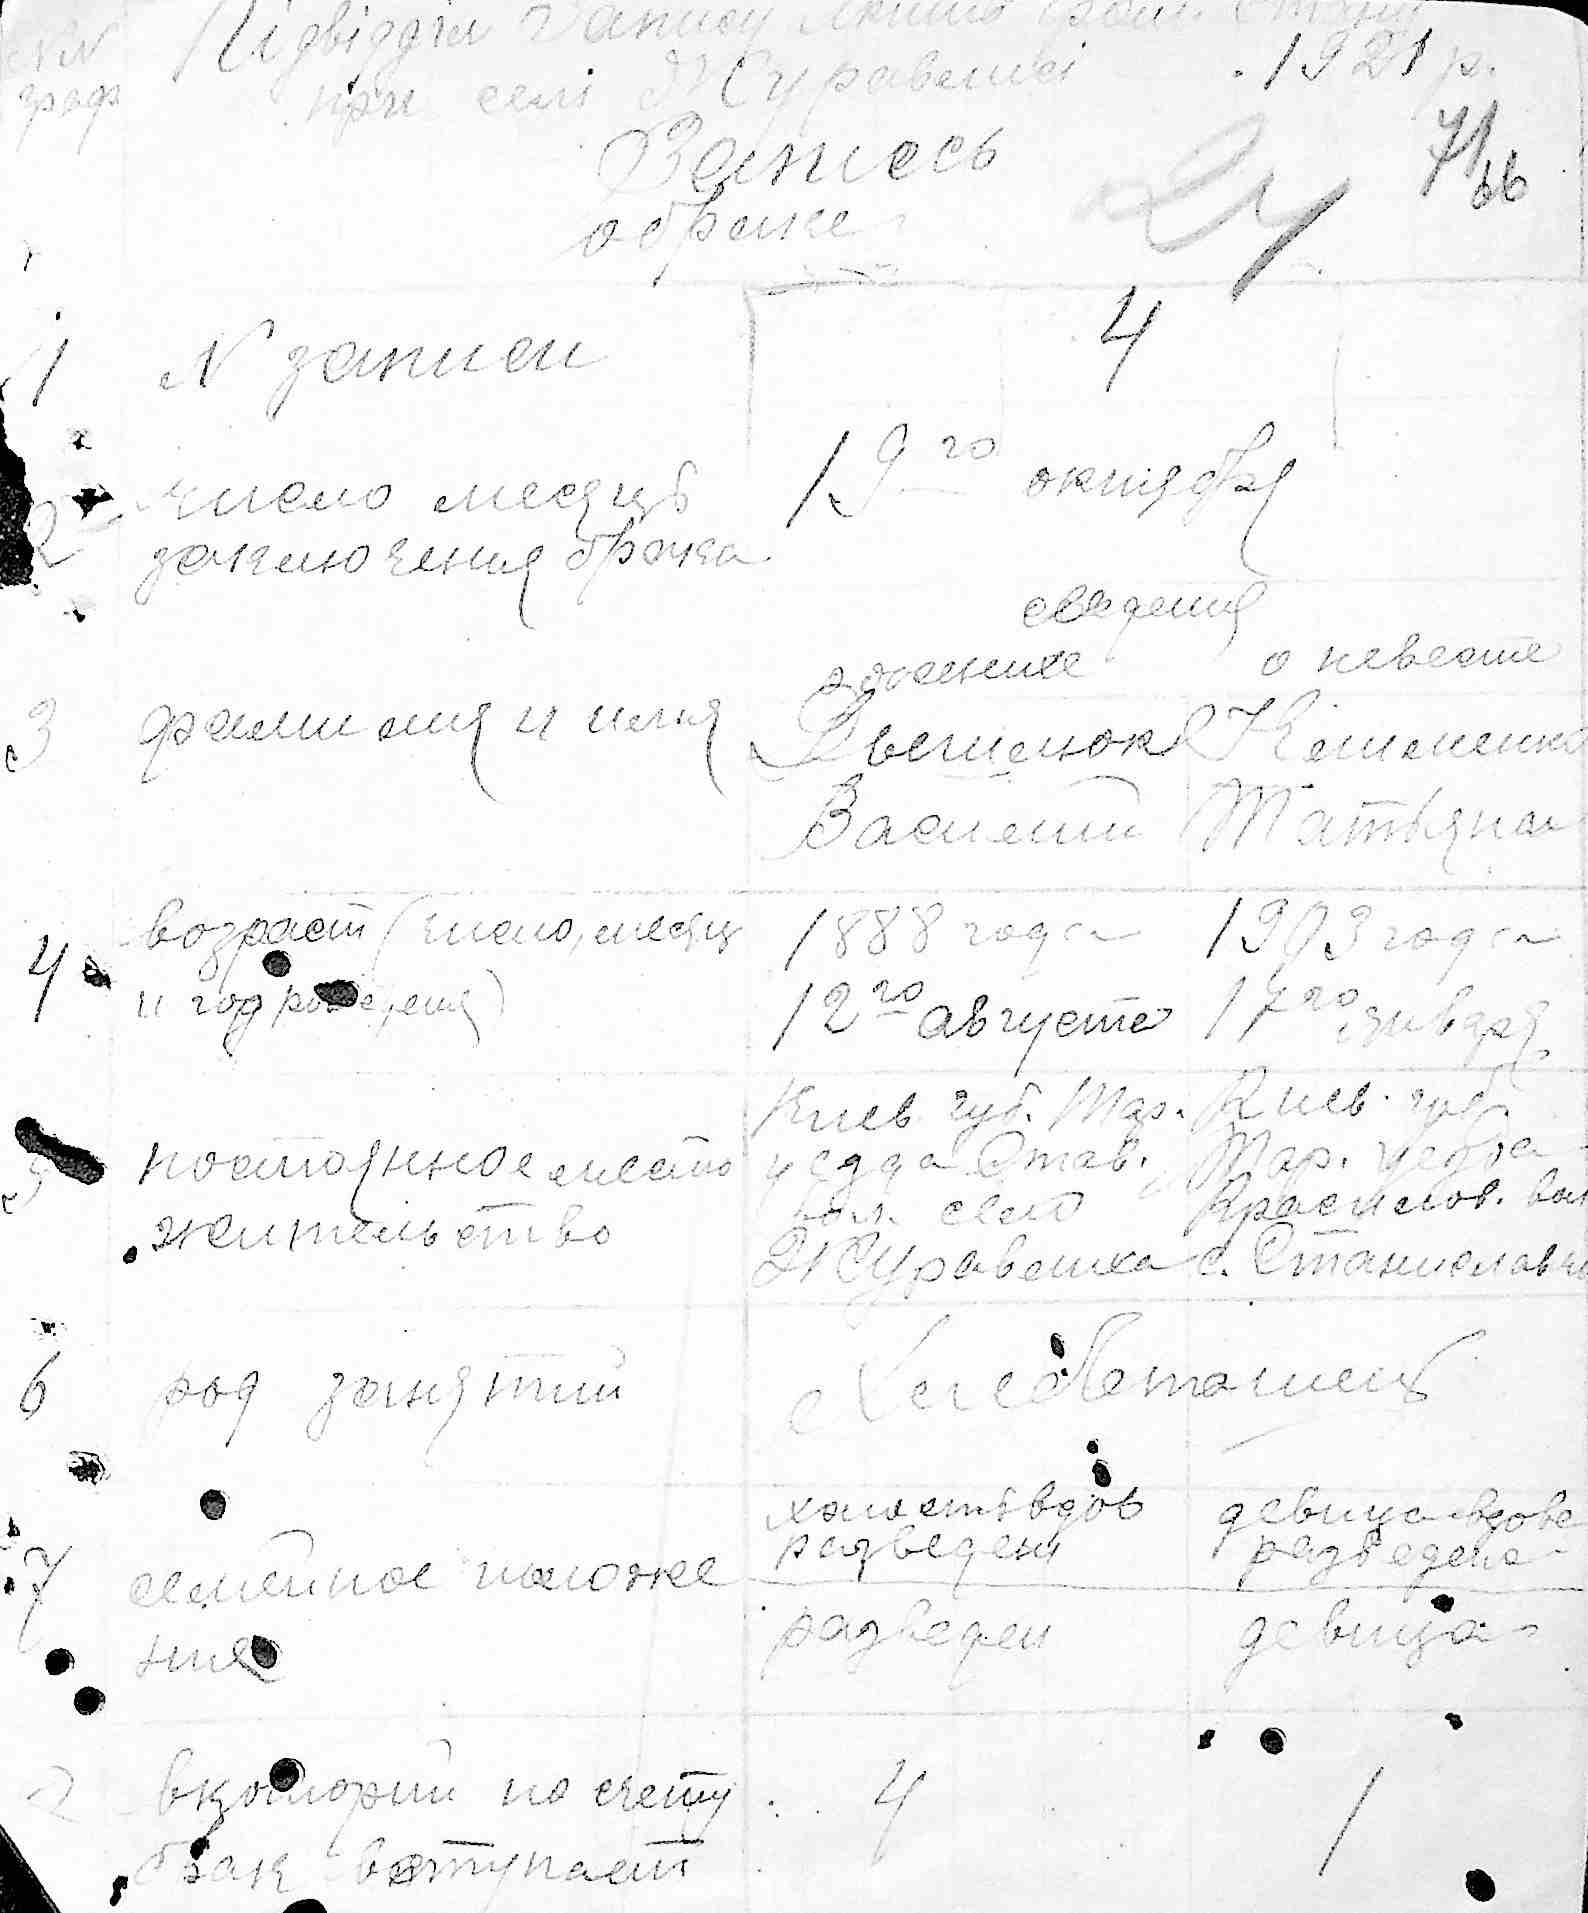 NN Підвідділ Запису Актів Гром. Стану
граф при селі Журавлисі 1921 р.
Запись 71/66
о браке 24
1 N записи 4
2 число месяцъ 19го октября
заключения брака
сведения
о женихе о невесте
3 фамилия и имя Клименко
Василий Татьяна
4 возраст (число, месяц 1888 года 1903 года
и год рождения) 12го августа 17го января
Киев. губ. Тар. Киев. губ.
5 постоянное место уезда Став. Тар. уезда
жительство вол. село Красилов. вол
Журавлиха с. Станиславч
6 род занятий Хлебопашец
холостъ вдов девица вдова
разведен разведена
7 семейное положе
ния разведен девица
вкоторий по счету 4 1
брак вступает